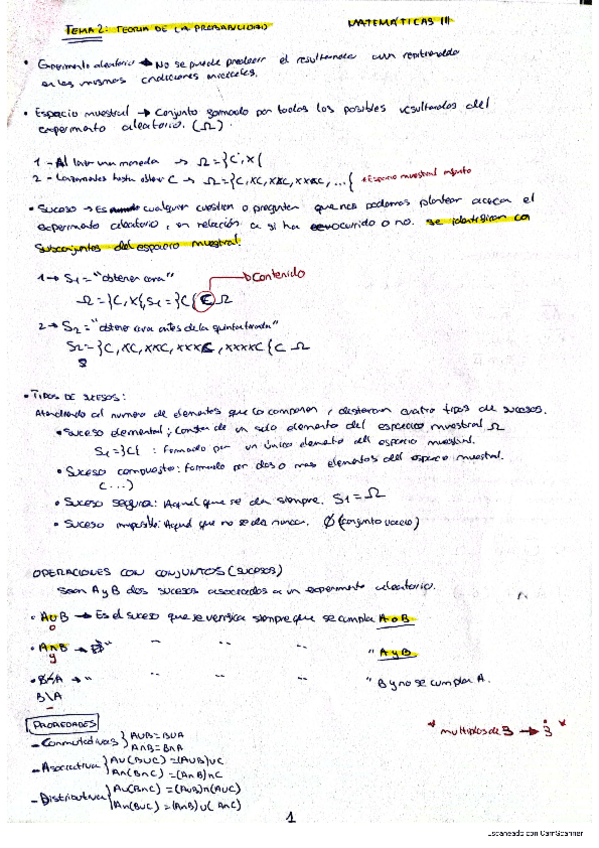 TEMA 2: TEORIA DE LA PROBABILIDAD
MATEMÁTICAS III
• Experimento aleatorio → No se puede predecir el resultado aun repitiendo
en las mismas condiciones iniciales.
• Espacio muestral → Conjunto formado por todos los posibles resultados del
experimento aleatorio. (Ω)
1 - Al lanzar una moneda → Ω = }C, X{
2 - Lanzamientos hasta obtener C → Ω = {C, XC, XXC, XXXC, ...{ * Espacio muestral infinito
• Suceso → Es cualquier cuestion o pregunta que nos podemos plantear acerca el
experimento aleatorio, en relación a si ha ocurrido o no. se identifican con
subconjuntos del espacio muestral.
1 → S1 = "obtener cara" → Contenido
Ω = }C, X{, S1 = }C{ C Ω
2 → S2 = "obtener cara antes de la quinta tirada"
S2 = }C, XC, XXC, XXXC, XXXXC{ C Ω
• TIPOS DE SUCESOS:
Atendiendo al numero de elementos que lo componen, destacan cuatro tipos de sucesos.
• Suceso elemental: Consta de un solo elemento del espacio muestral Ω
S1 = }C{ : Formado por un único elemento del espacio muestral.
• Suceso compuesto: formado por dos o mas elementos del espacio muestral.
(...)
• Suceso seguro: Aquel que se da siempre. S1 = Ω
• Suceso imposible: Aquel que no se da nunca. Ø (conjunto vacio)
OPERACIONES CON CONJUNTOS (SUCESOS)
Sean A y B dos sucesos asociados a un experimento aleatorio.
• A∪B → Es el suceso que se verifica siempre que se cumpla A o B
o
• A∩B → " " " " " A y B
y
• B-A → " " " " " B y no se cumpla A.
B\A
PROPIEDADES
* multiplos de 3 → 3̇ *
- Conmutativas } A∪B = B∪A
A∩B = B∩A
- Asociativa } A∪(B∪C) = (A∪B)∪C
A∩(B∩C) = (A∩B)∩C
- Distributiva } A∪(B∩C) = (A∪B)∩(A∪C)
A∩(B∪C) = (A∩B)∪(A∩C)
1
Escaneado con CamScanner